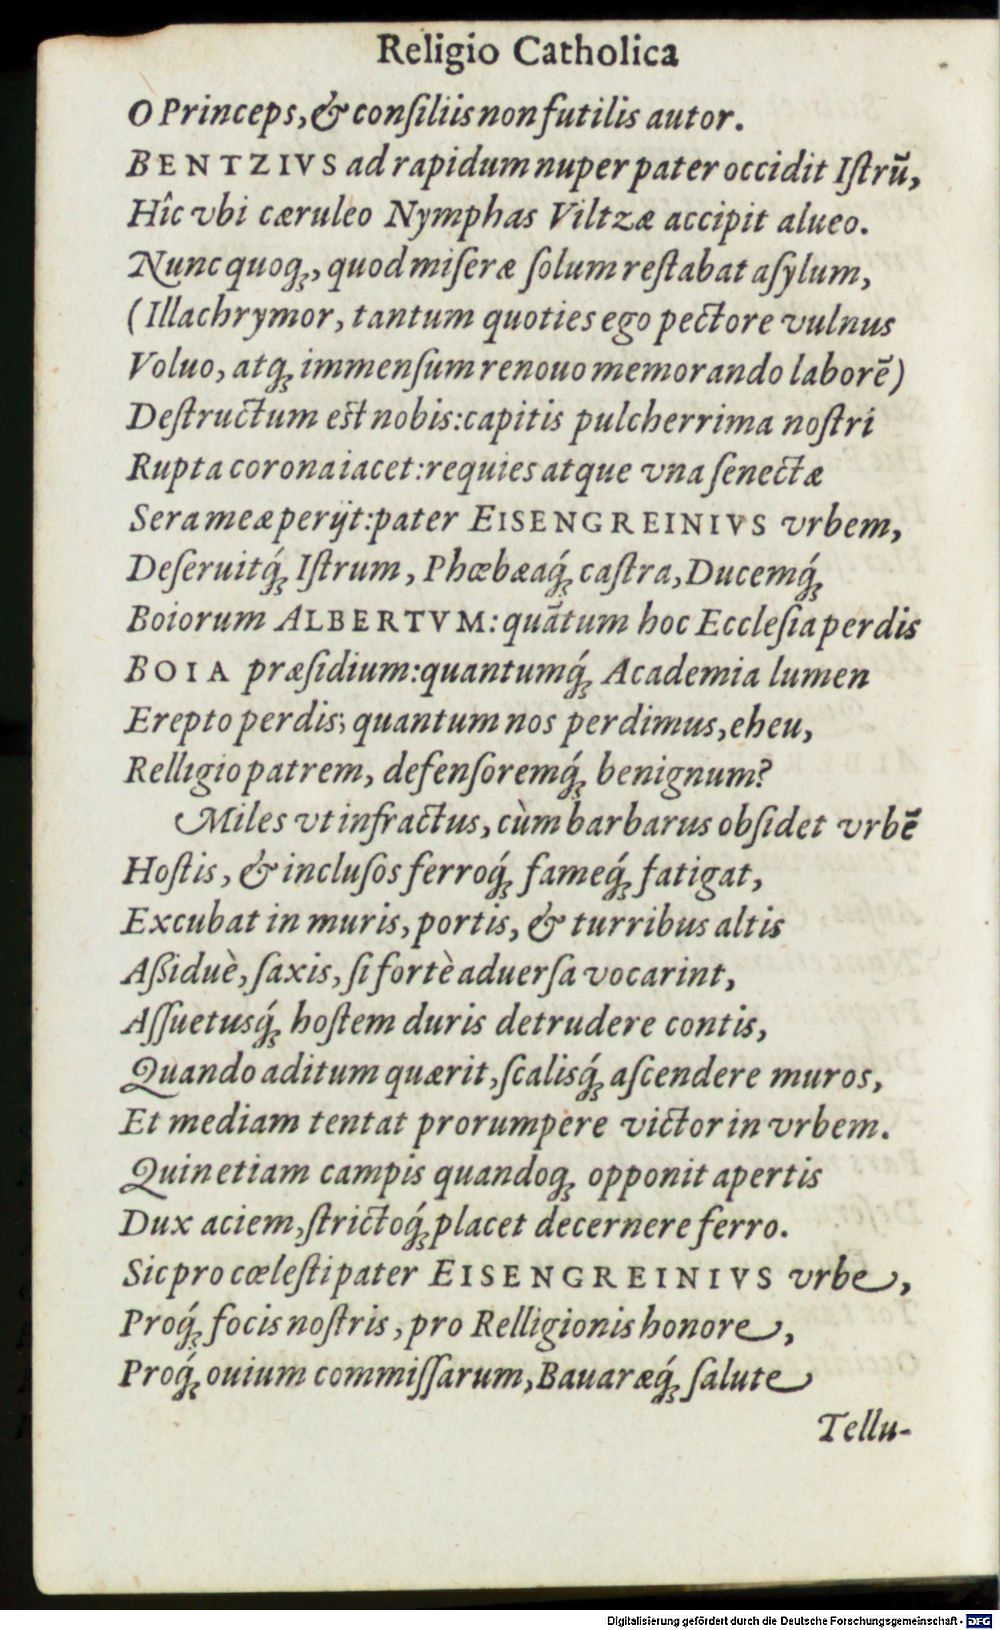 Religio Catholica
O Princeps, & conſiliis non futilis autor.
BENTZIVS ad rapidum nuper pater occidit Iſtrũ,
Hîc vbi cæruleo Nymphas Viltzæ accipit alueo.
Nunc quoq;, quod miſeræ ſolum reſtabat aſylum,
(Illachrymor, tantum quoties ego pectore vulnus
Voluo, atq; immenſum renouo memorando laborẽ)
Deſtructum eſt nobis: capitis pulcherrima noſtri
Rupta corona iacet: requies atque vna ſenectæ
Sera meæ perijt: pater EISENGREINIVS vrbem,
Deſeruitq́; Iſtrum, Phœbæaq́; caſtra, Ducemq́;
Boiorum ALBERTVM: quãtum hoc Eccleſia perdis
BOIA præſidium: quantumq́; Academia lumen
Erepto perdis; quantum nos perdimus, eheu,
Relligio patrem, defenſoremq́; benignum?
Miles vt infractus, cùm barbarus obſidet vrbẽ
Hoſtis, & incluſos ferroq́; fameq́; fatigat,
Excubat in muris, portis, & turribus altis
Aßiduè, ſaxis, ſi fortè aduerſa vocarint,
Aſſuetusq́; hoſtem duris detrudere contis,
Quando aditum quærit, ſcalisq́; aſcendere muros,
Et mediam tentat prorumpere victor in vrbem.
Quin etiam campis quandoq; opponit apertis
Dux aciem, ſtrictoq́; placet decernere ferro.
Sic pro cœleſti pater EISENGREINIVS vrbe,
Proq́; focis noſtris, pro Relligionis honore,
Proq́; ouium commiſſarum, Bauaræq́; ſalute
Tellu-
Digitalisierung gefördert durch die Deutsche Forschungsgemeinschaft - DFG